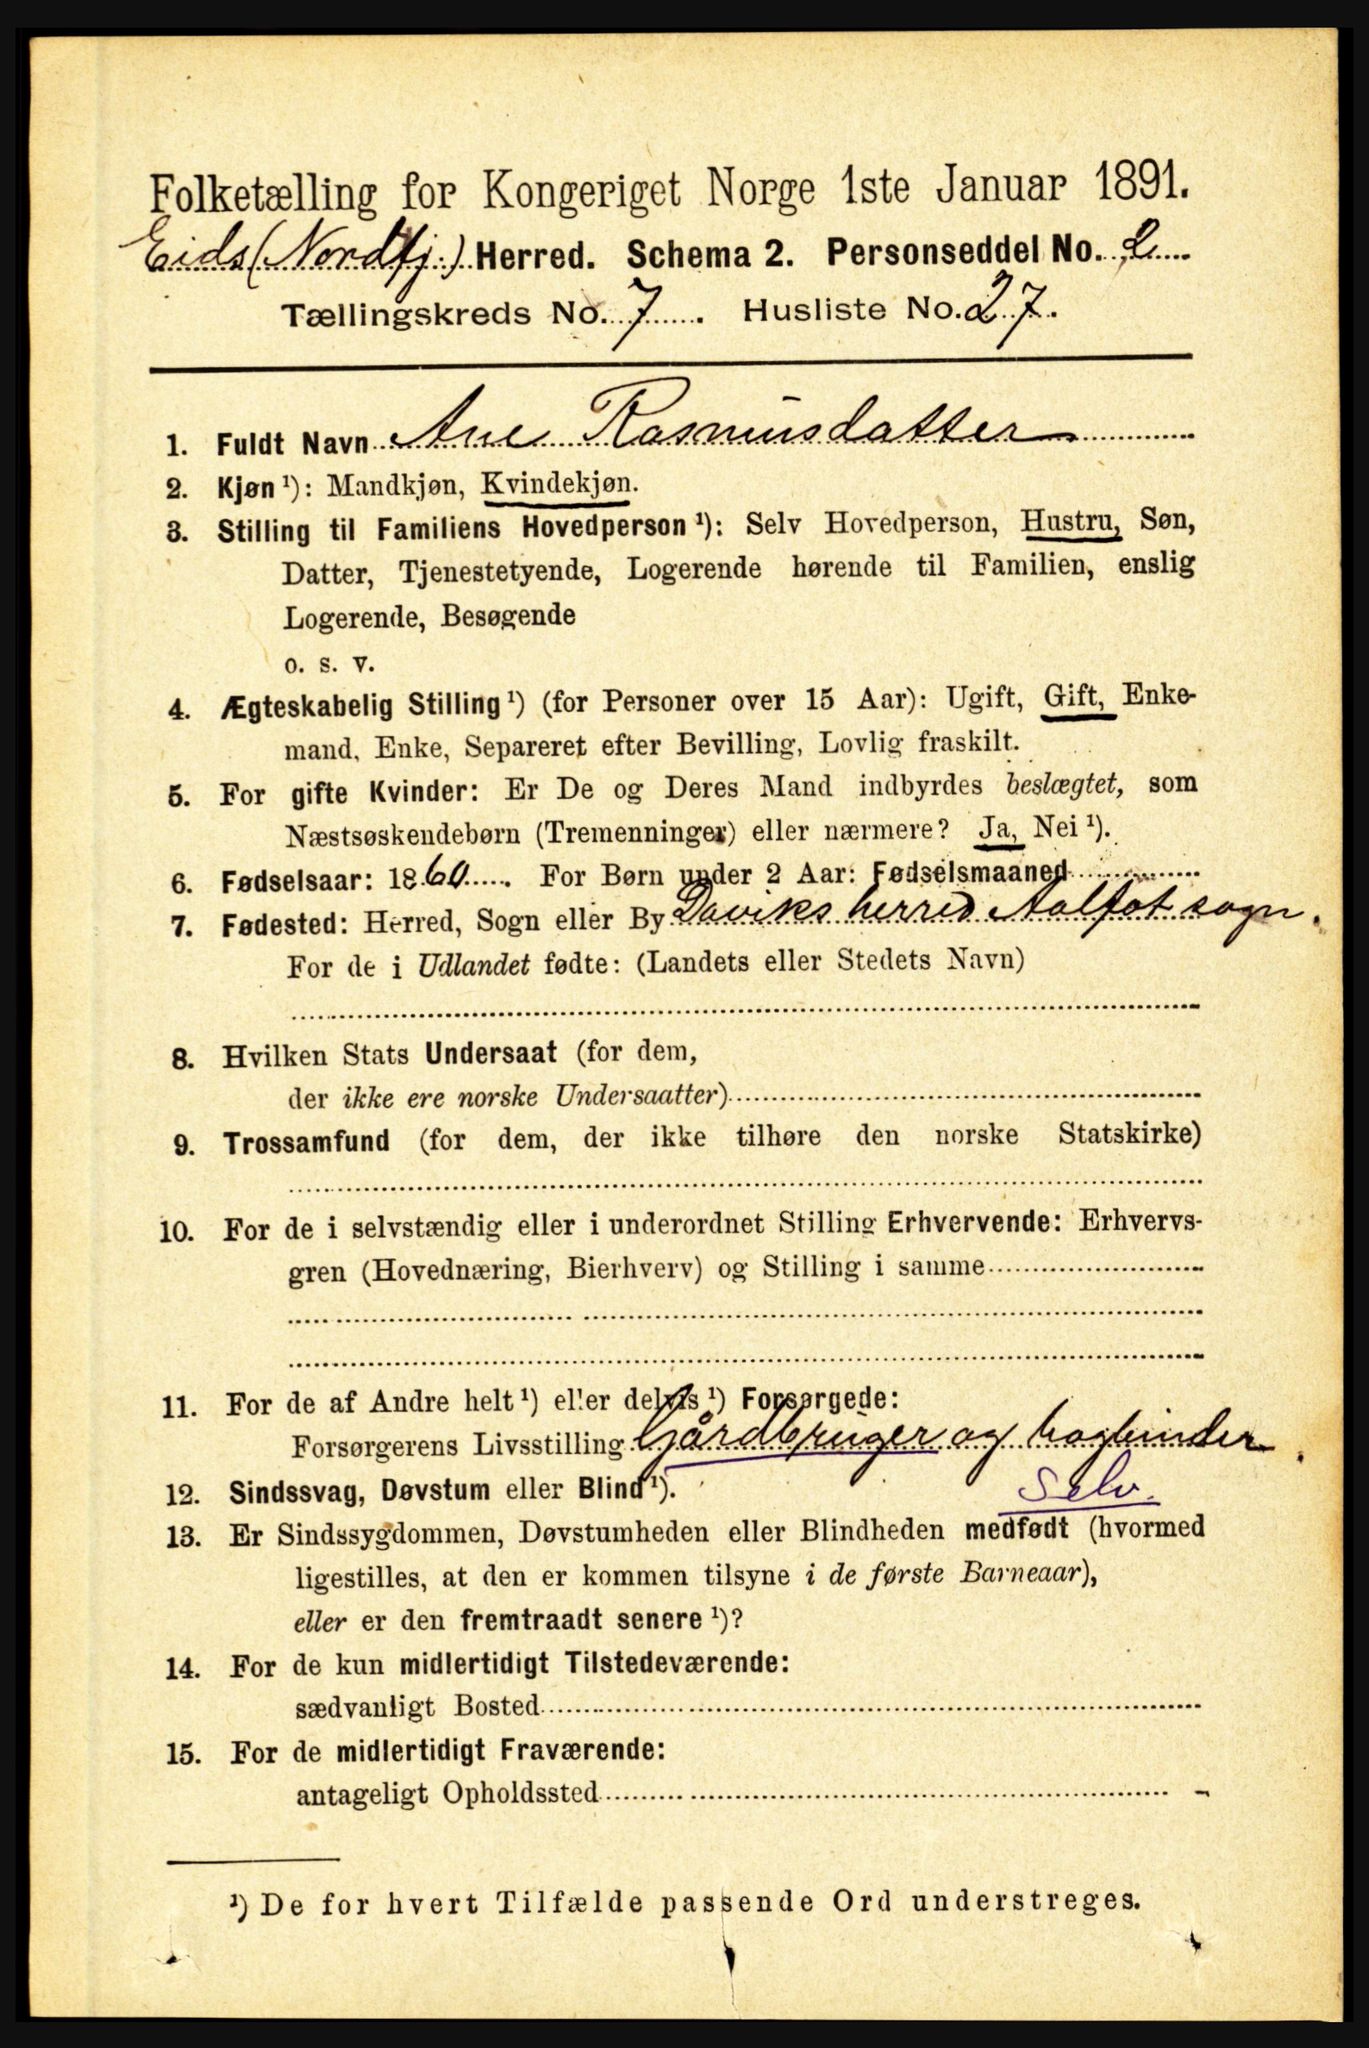 Folketælling for Kongeriget Norge 1ste Januar 1891.
Eids (Nordfj.) Herred. Schema 2. Personseddel No. 2
Tællingskreds No. 7. Husliste No. 27.
1. Fuldt Navn Ane Rasmusdatter
2. Kjøn¹): Mandkjøn, Kvindekjøn.
3. Stilling til Familiens Hovedperson¹): Selv Hovedperson, Hustru, Søn,
Datter, Tjenestetyende, Logerende hørende til Familien, enslig
Logerende, Besøgende
o. s. v.
4. Ægteskabelig Stilling¹) (for Personer over 15 Aar): Ugift, Gift, Enke-
mand, Enke, Separeret efter Bevilling, Lovlig fraskilt.
5. For gifte Kvinder: Er De og Deres Mand indbyrdes beslægtet, som
Næstsøskendebørn (Tremenninger) eller nærmere? Ja, Nei¹).
6. Fødselsaar: 1860. For Børn under 2 Aar: Fødselsmaaned
7. Fødested: Herred, Sogn eller By Daviks herred Aalfot sogn.
For de i Udlandet fødte: (Landets eller Stedets Navn)
8. Hvilken Stats Undersaat (for dem,
der ikke ere norske Undersaatter)
9. Trossamfund (for dem, der ikke tilhøre den norske Statskirke)
10. For de i selvstændig eller i underordnet Stilling Erhvervende: Erhvervs-
gren (Hovednæring, Bierhverv) og Stilling i samme
11. For de af Andre helt¹) eller delvis¹) Forsørgede:
Forsørgerens Livsstilling Gårdbruger og bogbinder.
12. Sindssvag, Døvstum eller Blind¹). Selv.
13. Er Sindssygdommen, Døvstumheden eller Blindheden medfødt (hvormed
ligestilles, at den er kommen tilsyne i de første Barneaar),
eller er den fremtraadt senere¹)?
14. For de kun midlertidigt Tilstedeværende:
sædvanligt Bosted
15. For de midlertidigt Fraværende:
antageligt Opholdssted
¹) De for hvert Tilfælde passende Ord understreges.